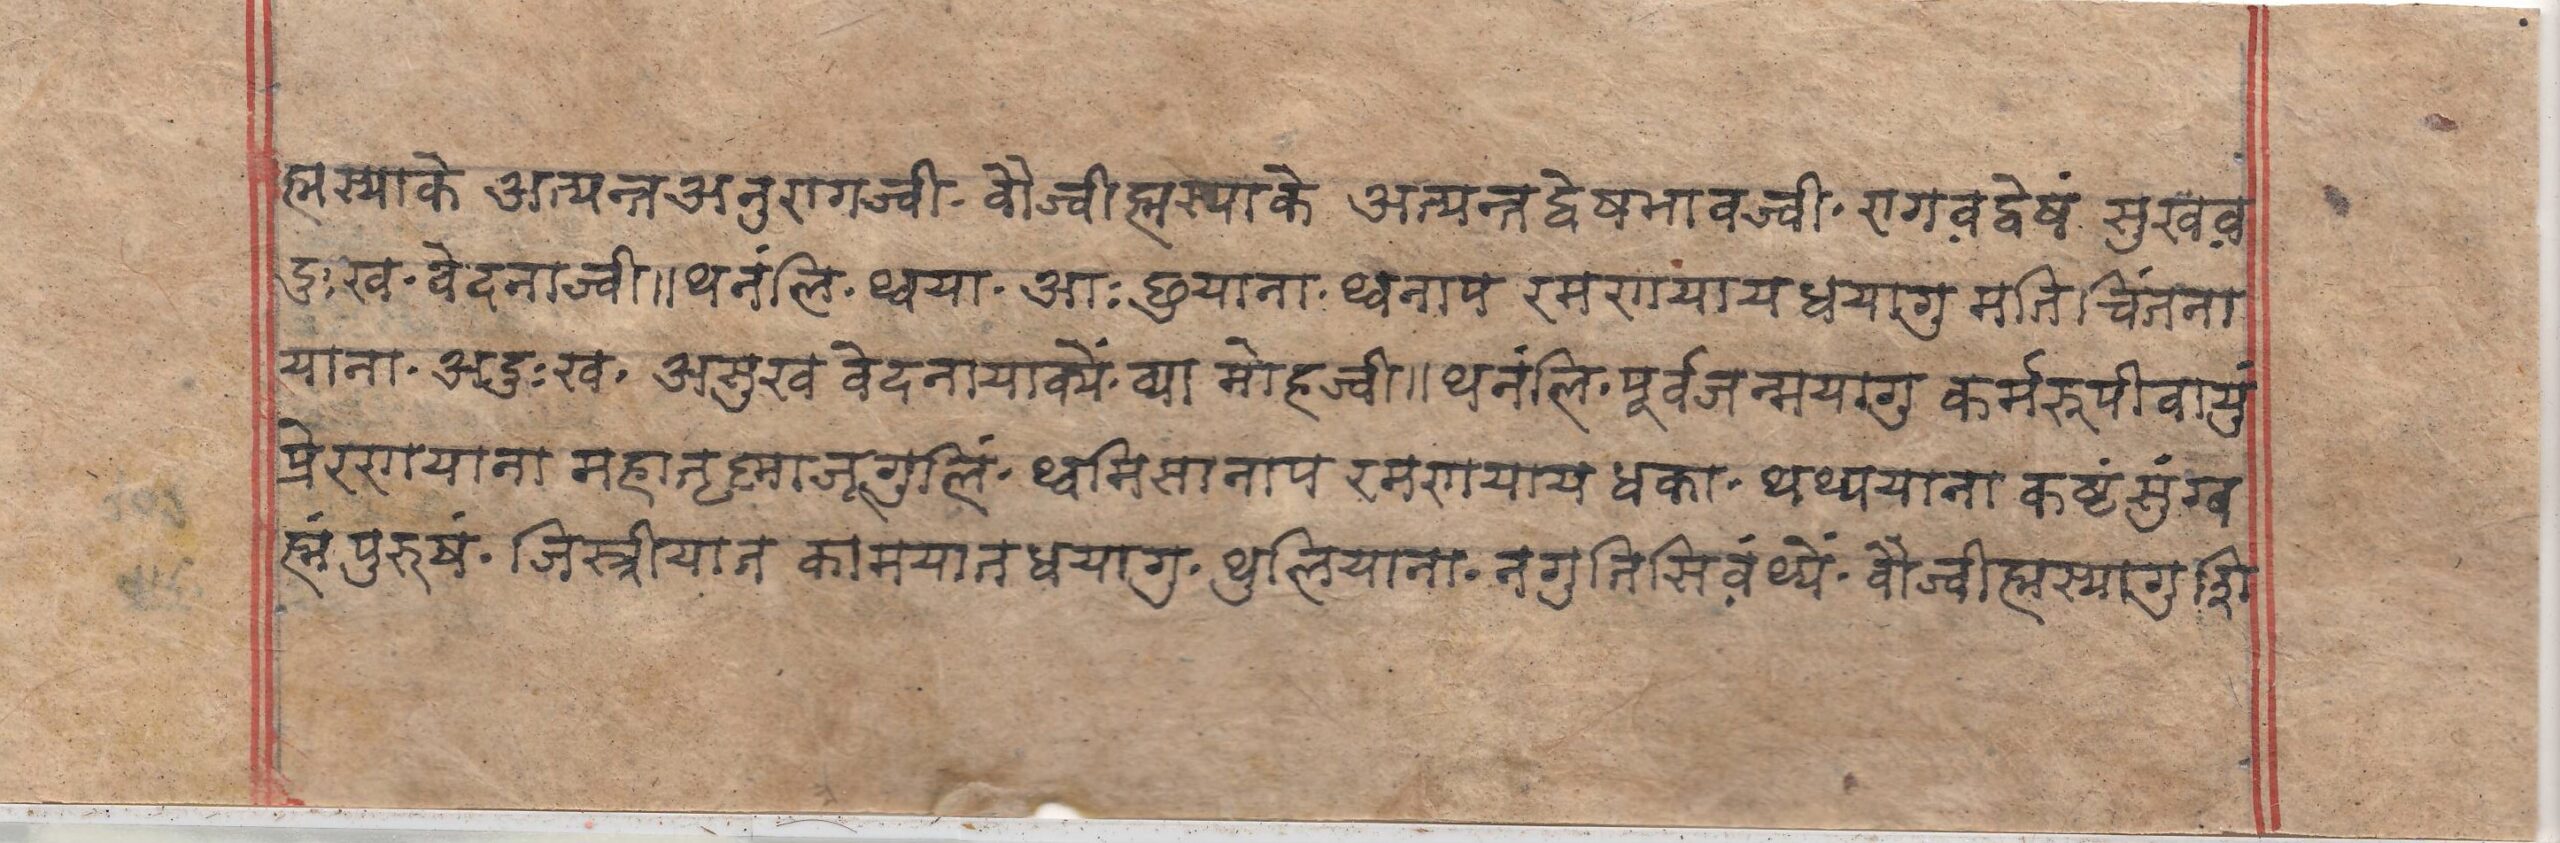 ह्मस्याके अत्यन्तअनुरागज्वी· वौज्वीह्मस्याके अत्यन्तद्वेषभावज्वी· रागव़द्वेषं सुखव़
दुःख· वेदनाज्वी॥ थनंलि· थ्वया· आः छुयाना· थ्वनाप रमरायाय धयागु मतिचिंतना
याना· अदुःख· असुख वेदनायाक्यें· व्या मोहज्वी॥ थनंलि· पूर्वजन्मयागु कर्मरूपीवायुं
प्रेररायाना महातृह्माजूगुलिं· थ्वमिसानाप रमरायाय धका· थथ्ययाना कष्टंसुंग्व
ह्मं पुरुषं· जिस्त्रीयात कामयात धयागु· थुलियाना· नगुतिसिव़ंथ्यें· वौज्वीह्मस्यागु